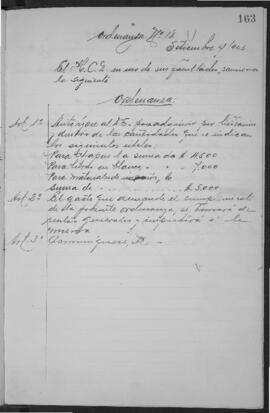 163
Ordenanza Nº 18
Setiembre 4/
El H.C.D. en uso de sus facultades, sanciona
lo siguiente
Ordenanza:
Art. 1º Autorízase al D.E. para adquirir por licitación
dentro de las cantidades que se indican
los siguientes útiles:
Para chapas la suma de $ 11.500
Para en - - 7.000
Para materiales la
suma de $ 5.000
Art. 2º El gasto que demande el cumplimiento
de la presente ordenanza, se tomará de
rentas generales e imputará a la
misma
Art. 3º Comuníquese, &.